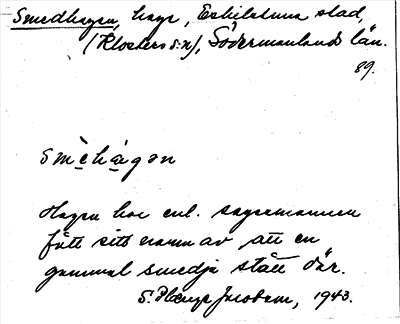 Smedhagen, hage, Eskilstuna stad,
(Klosters s:n), Södermanlands län.
89.
smèhàgən
Hagen har enl. sagesmannen
fått sitt namn av att en
gammal smedja stått där.
S. Plenge Jacobson, 1943.